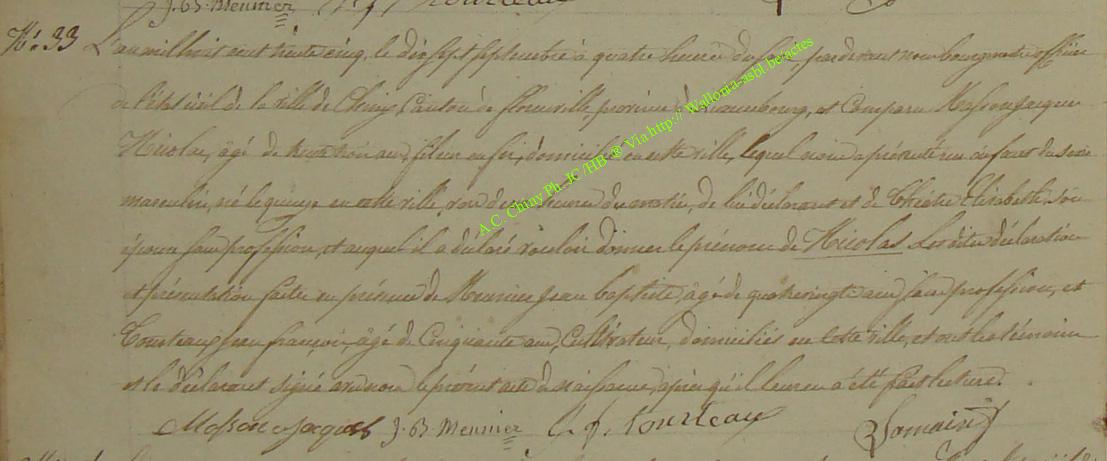 J. B. Meunier
N.° 33 L'an mil huit cent trente cinq, le dix sept septembre à quatre heures du soir, pardevant nous bourgmestre officier
de l'état civil de la ville de Chiny, Canton de florenville, province de Luxembourg, est Comparu Masson Jacques
Nicolas, âgé de trente trois ans, fileur en fer, domicilié en cette ville, lequel nous a présenté un enfant du sexe
masculin, né le quinze en cette ville, vers heures du matin, de lui déclarant et de Elisabeth, son
épouse sans profession, et auquel il a déclaré vouloir donner le prénom de Nicolas Les dites déclaration
et présentation faites en présence de Meunier Jean baptiste, âgé de quatrevingts ans, sans profession, et
Tourteau jean françois, âgé de Cinquante ans, Cultivateur, domiciliés en cette ville, et ont les témoins
et le déclarant signé avec nous le présent acte de naissance, après qu'il leur en a été fait lecture.
Masson Jacques J. B. Meunier J. f. Tourteau
A.C. Chiny Ph. JC /HB ® Via http:// Wallonia-asbl.be/actes